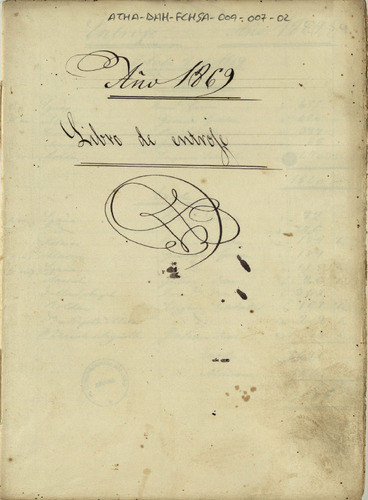 ATHA-DAH-FCHSA-009-007-02
Año 1869
Libro de entroje